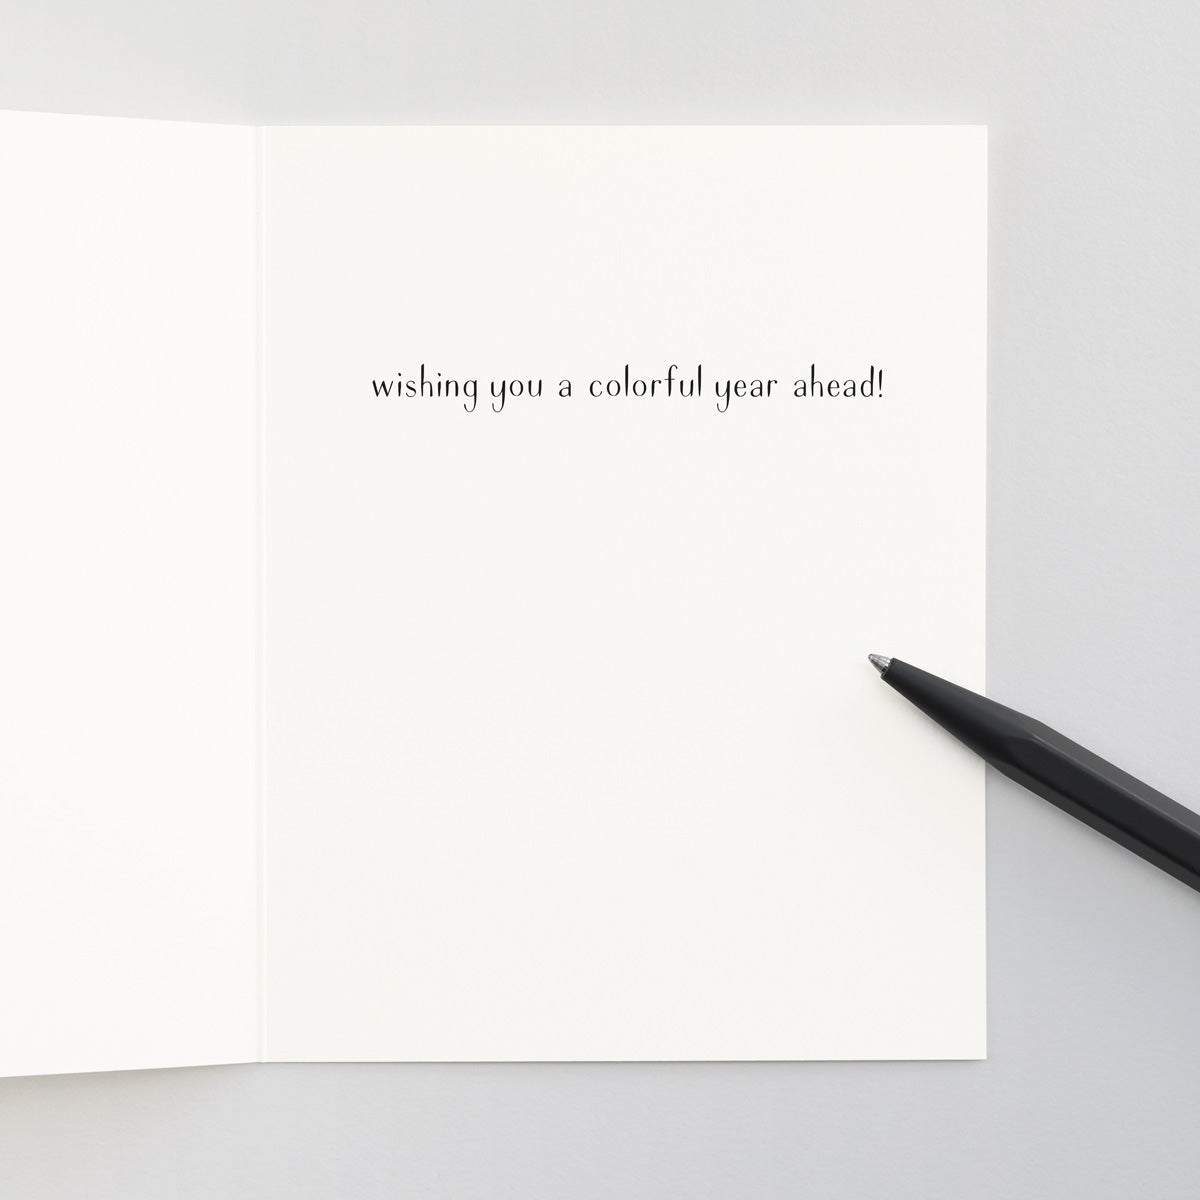 wishing you a colorful year ahead!